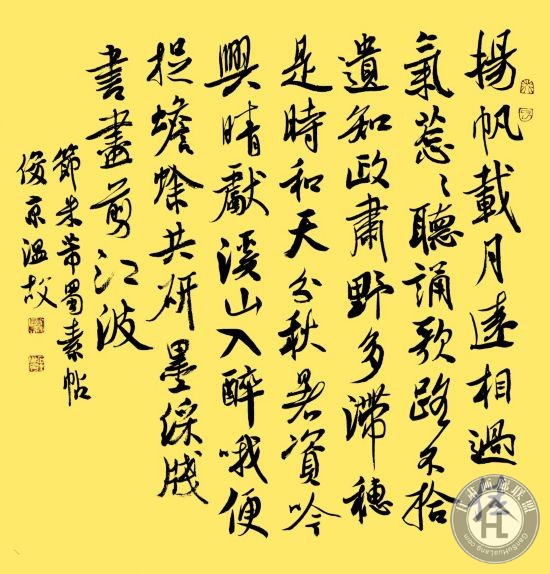 揚帆載月遠相過佳
氣蔥〻聽誦歌路不拾
遺知政肅野多滯穗
是時和天分秋暑資吟
興晴獻溪山入醉哦便
捉蟾蜍共研墨綵牋
書盡剪江波
節米芾蜀素帖
俊京温故
甘肃画廊联盟
GanSuHuaLang.com